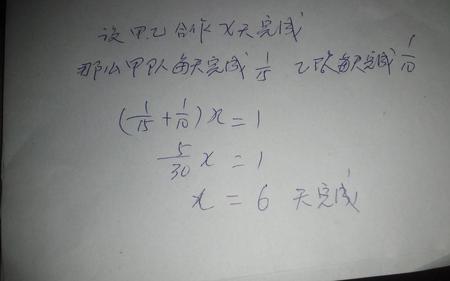 设甲.乙合作x天完成
那么甲队每天完成 1/15 乙队每天完成 1/10
(1/15 + 1/10) x = 1
5/30 x = 1
x = 6 天完成